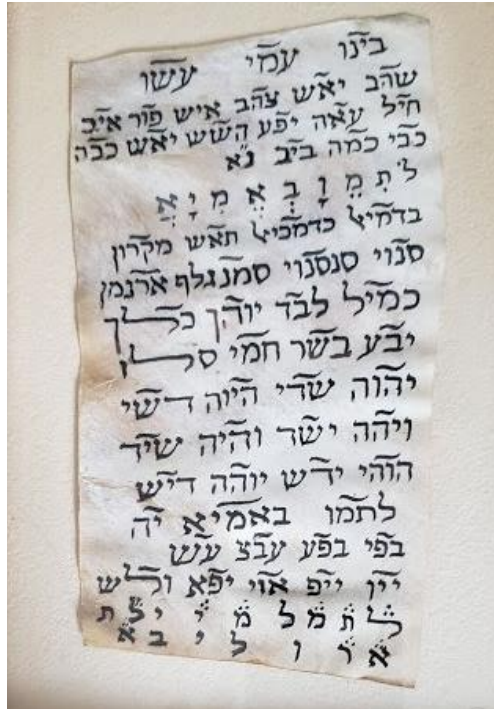 בינו עמי עשו
שהב יאש צהב איש פור איב
חיל עאה יפע השש יאש כבה
כבי כמה ביב נא
לתמן באמיא
בדמיל כדמכיל תאש מקרון
סנוי סנסנוי סמנגלף ארגמן
כמיל לבד יוהך כלך
יבע בשר חמי סלן
יהוה שדי היוה דשי
ויהה ישד והיה שיד
הוהי ידש יוהה דיש
לתמו באמיא יה
בפי בפע עבצ עש
יין ייפ אוי יפא ולש
ל ת מ ל מ י י צ ת
א ר ו ל י ב א